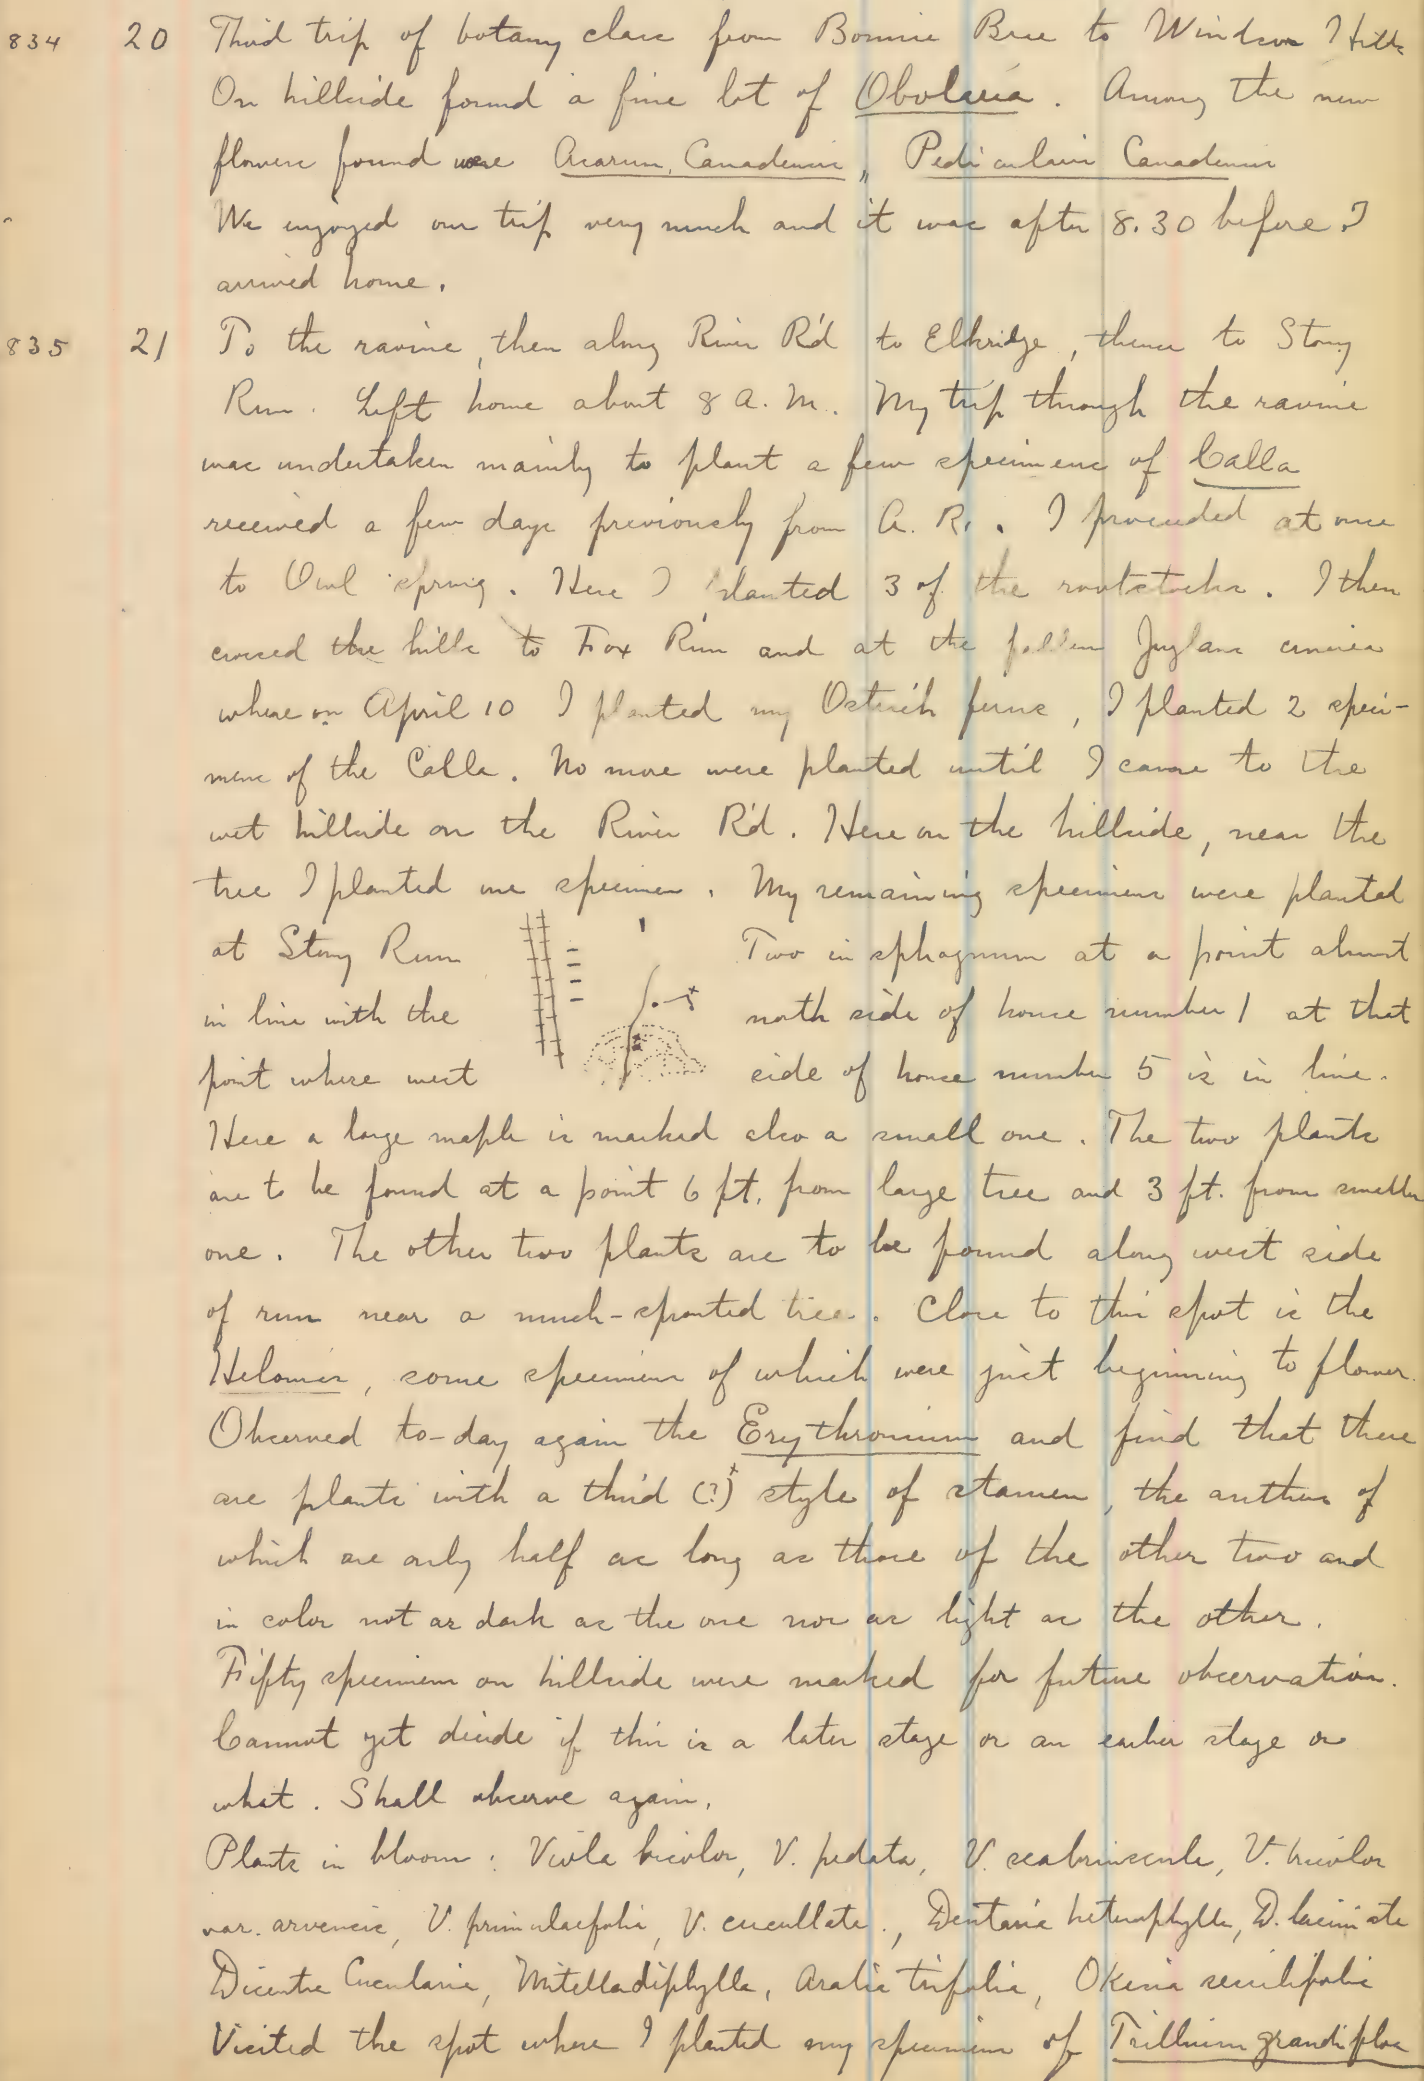 834 20 Third trip of botany class from Bonnie Brae to Windsor Hills
On hillside found a fine lot of Obolaria. Among the new
flowers found were Asarum Canadensis, Pedicularis Canadensis
We enjoyed our trip very much and it was after 8.30 before I
arrived home.
835 21 To the ravine, then along River R'd to Elkridge, thence to Stony
Run. Left home about 8 A.M. My trip through the ravine
was undertaken mainly to plant a few specimens of Calla
received a few days previously from A. R. I proceeded at once
to Owl spring. Here I planted 3 of the rootstocks. I then
crossed the hills to Fox Run and at the fallen Juglans cinerea
where on April 10 I planted my Ostrich ferns, I planted 2 speci-
mens of the Calla. No more were planted until I came to the
wet hillside on the River R'd. Here on the hillside, near the
tree I planted one specimen. My remaining specimens were planted
at Stony Run Two in sphagnum at a point almost
in line with the north side of house number 1 at that
point where west side of house number 5 is in line.
Here a large maple is marked also a small one. The two plants
are to be found at a point 6 ft. from large tree and 3 ft. from smaller
one. The other two plants are to be found along west side
of run near a much-sprouted tree. Close to this spot is the
Helonias, some specimens of which were just beginning to flower.
Observed to-day again the Erythronium and find that there
are plants with a third (?) style of stamen, the anthers of
which are only half as long as those of the other two and
in color not as dark as the one nor as light as the other.
Fifty specimens on hillside were marked for future observation.
Cannot yet decide if this is a later stage or an earlier stage or
what. Shall observe again.
Plants in bloom: Viola bicolor, V. pedata, V. scabriuscula, V. tricolor
var. arvensis, V. primulaefolia, V. cucullata, Dentaria heterophylla, D. laciniata
Dicentra Cucularia, Mitella diphylla, Aralia trifolia, Okesia sessilifolia
Visited the spot where I planted my specimens of Trillium grandiflor